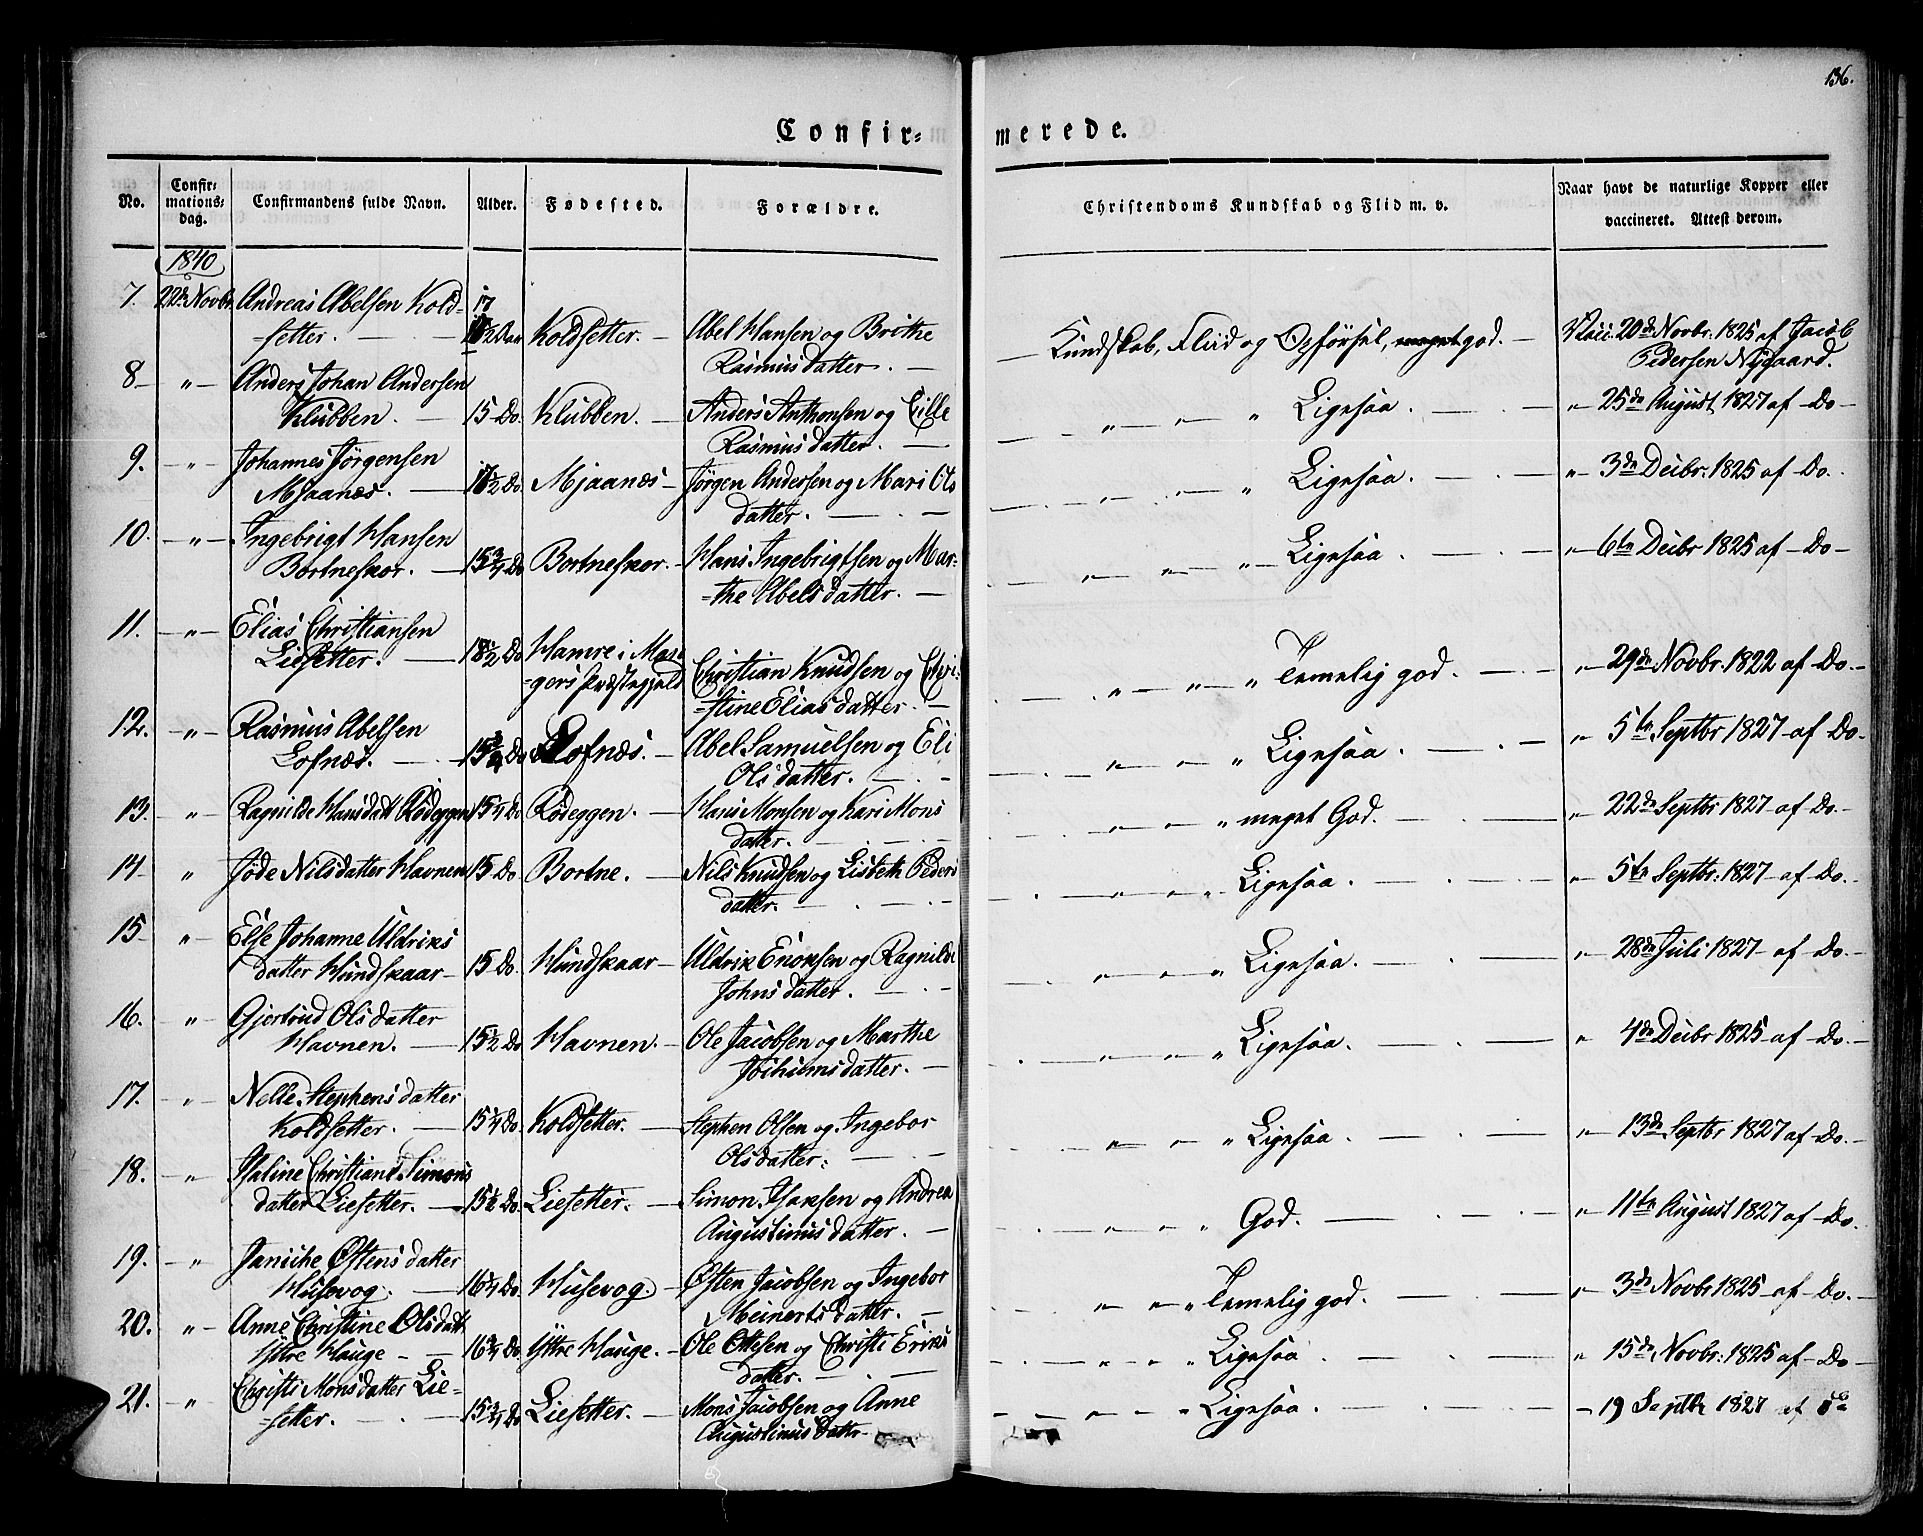 136.
Confir= merede.
No. Confir=mations=dag. Confirmandens fulde Navn. Alder. Fødested. Forældre. Christendoms Kundskab og Flid m. v. Naar havt de naturlige Kopper eller vaccineret. Attest derom.
1840
7. 22de Novbr. Andreas Abelsen Kold- 17
=setter. ½ Aar Koldsetter. Abel Hansen og Brithe Kundskab, Fliid og Opførsel, meget god. Vacc. 20de Novbr. 1825 af Jacob
Rasmusdatter. Pedersen Nygaard.
8 " Anders Johan Andersen
Klubben. 15 Do. Klubben. Anders Anthonsen og Cille " " Ligesaa. " 25de August 1827 af Do
Rasmusdatter.
9. " Johannes Jørgensen
Mjaanæs. 17½ Do. Mjaanæs Jørgen Andersen og Mari Ols " Ligesaa. " 3de Decbr. 1825 af Do.
datter.
10. " Ingebrigt Hansen
Bortneskor. 15¾ Do Bortneskor. Hans Ingebrigtsen og Mar= " " " Ligesaa. " 6te Decbr 1825 af Do
=the Abelsdatter.
11. " Elias Christiansen
Liesetter. 18½ Do Hamre i Man=
=gers Præstegjeld Christian Knudsen og Chri= " " " Temelig god. " 29de Novbr. 1822 af Do.
=stine Eliasdatter.
12. " Rasmus Abelsen
Lofnæs. 15¾ Do Lofnæs. Abel Samuelsen og Eli " " " Ligesaa. " 5te Septbr 1827 af Do.
Olsdatter.
13. " Ragnilde Hansdatt Rødeggen 15¼ Do Rødeggen. Hans Monsen og Kari Mons " " " meget God. " 22de Septbr 1827 af Do.
datter.
14 " Jøde Nilsdatter Havnen 15 Do Bortne. Nils Knudsen og Lisbeth Peders " " " Ligesaa. " 5te Septbr: 1827 af Do.
datter.
15 " Else Johanne Uldriks
datter Hundskaar 15 Do. Hundskaar Uldrik Enoksen og Ragnilde " " " Ligesaa. " 28de Juli 1827 af Do.
Johnsdatter.
16. " Gjertrud Olsdatter
Havnen. 15½ Do Havnen. Ole Jacobsen og Marthe " " " Ligesaa. " 4de Decbr 1825 af Do.
Jochumsdatter.
17. " Nelle Stephensdatter
Koldsetter. 15¼ Do. Koldsetter. Stephen Olsen og Ingebor " " " Ligesaa. " 13de Septbr 1827 af Do.
Olsdatter.
18. " Isaline Christiane Simons
datter Liesetter. 15½ Do. Liesetter. Simon Isaksen og Andrea " " " God. " 11te August 1827 af Do.
Augustinusdatter.
19. " Janiche Østensdatter
Husevog. 16¼ Do. Husevog. Østen Jacobsen og Ingebor " " " Temelig god. " 3de Novbr 1825 af Do.
Meinertsdatter.
20. " Anne Christine Olsdatt
Yttre Hauge 16¾ Do Yttre Hauge. Ole Ottesen og Christi Eriks " " " Ligesaa " 15de Novbr: 1825 af Do
datter.
21. " Christi Monsdatter Lie-
=setter. 15¾ Do Liesetter. Mons Jacobsen og Anne " " " Ligesaa. 19 Septbr 1827 af Do
Augustinusdatter